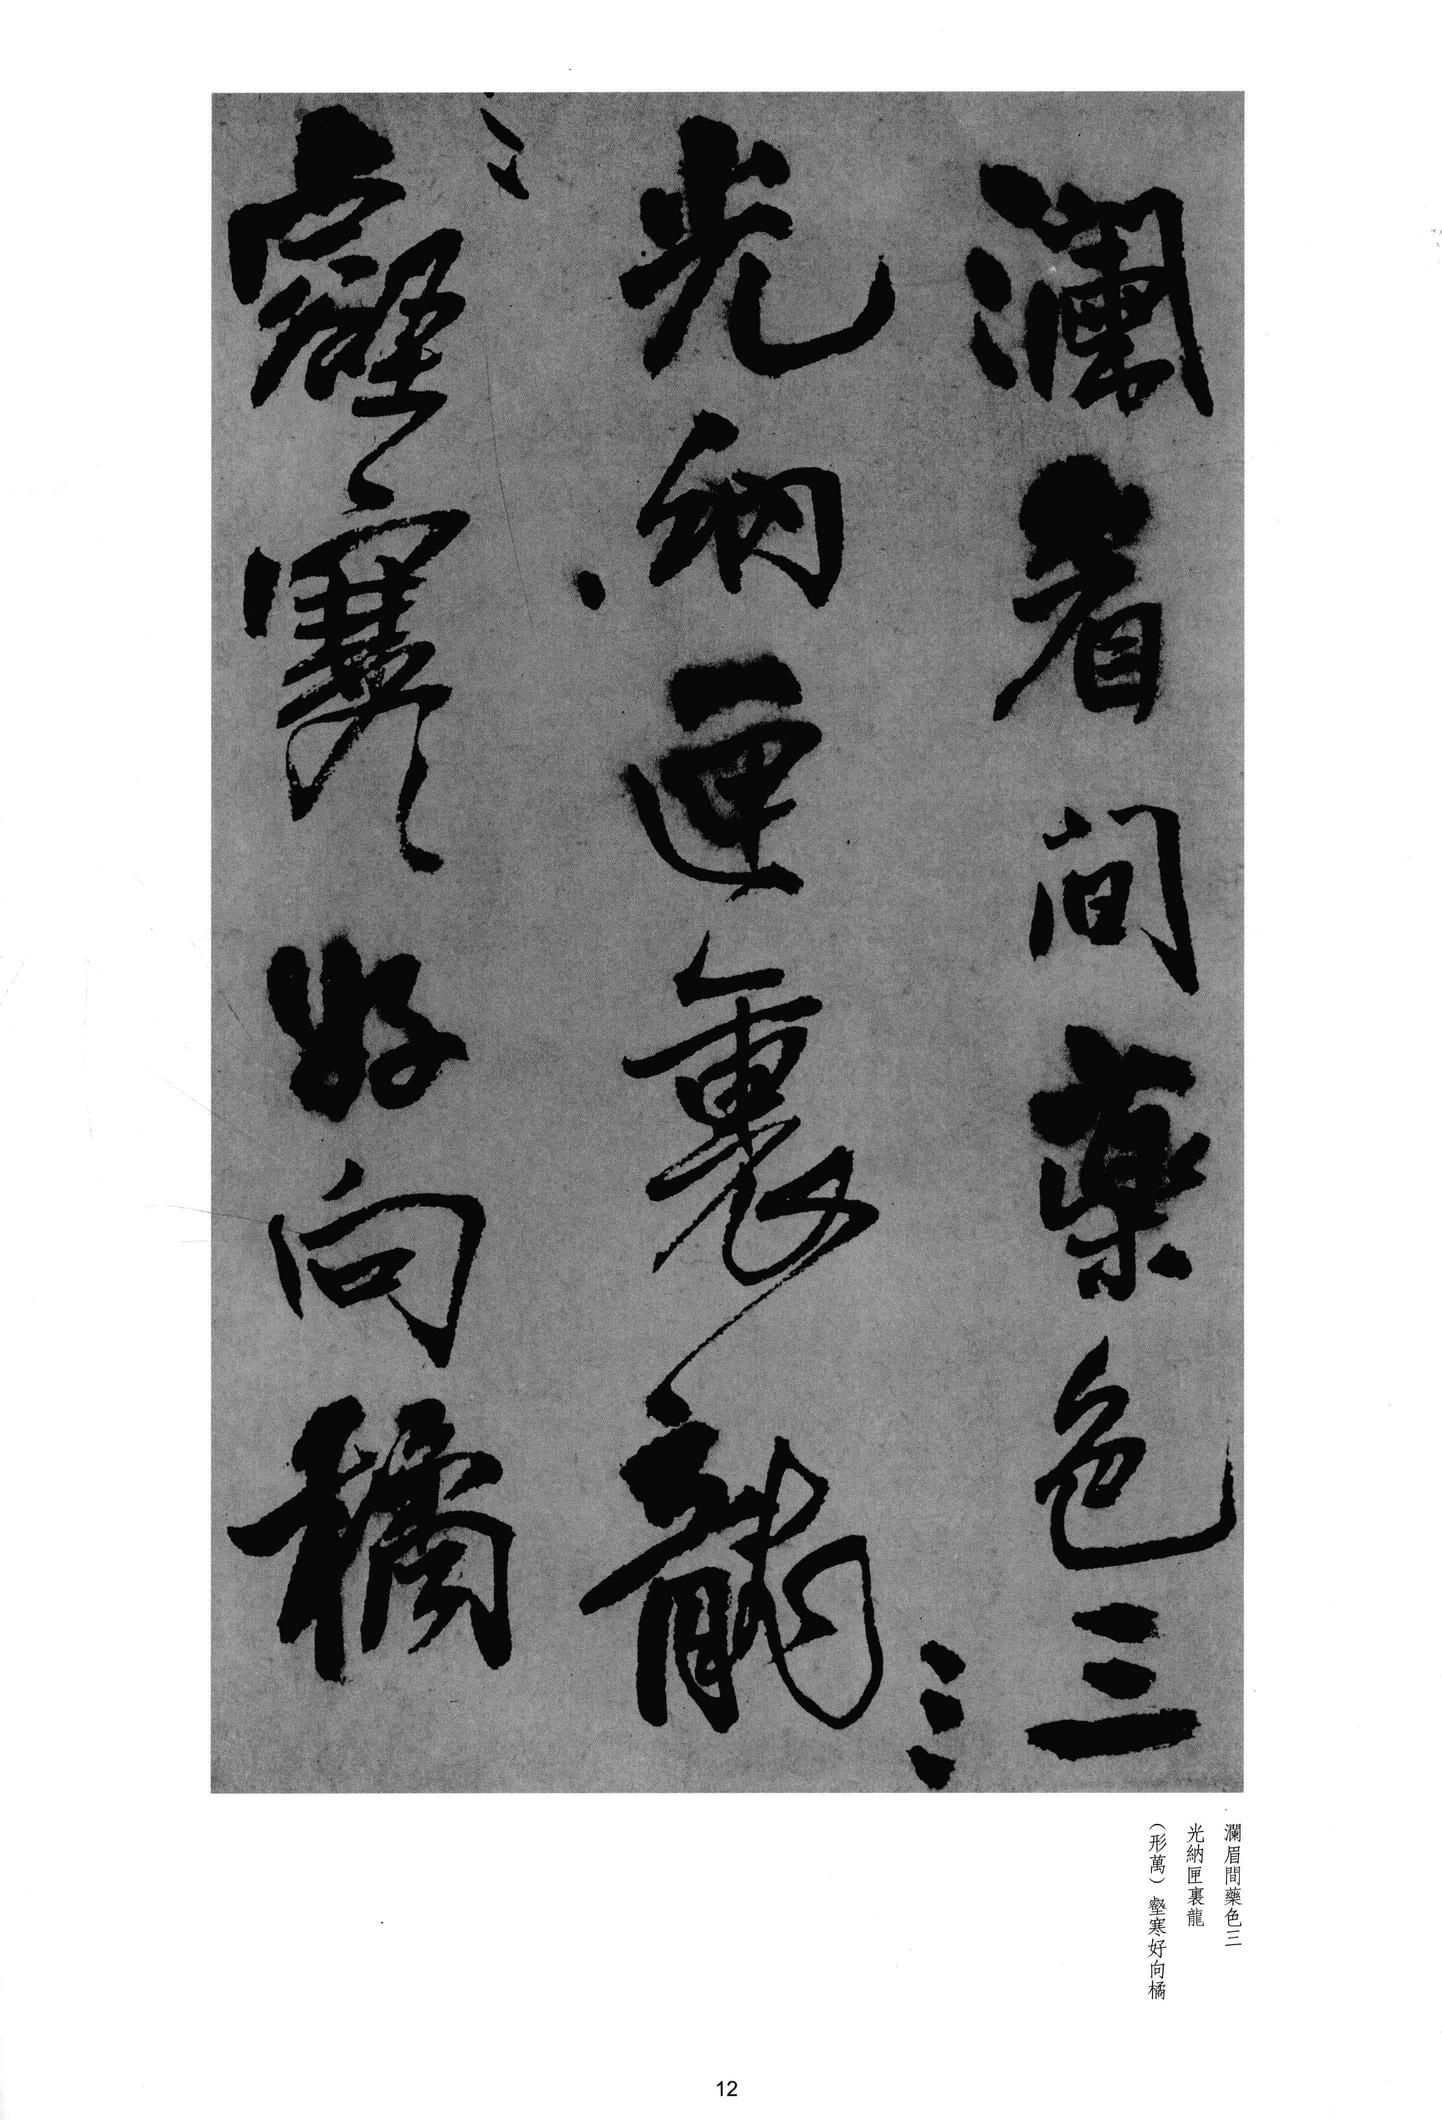 瀾眉間藥色三
光納匣裏龍
壑寒好向橘
瀾眉間藥色三
光納匣裏龍
（形萬）壑寒好向橘
12